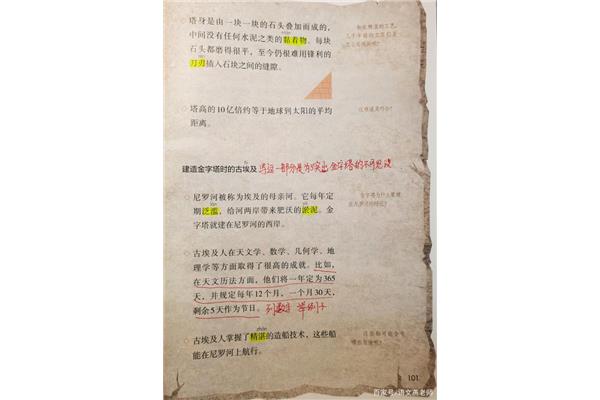 塔身是由一块一块的石头叠加而成的,
中间没有任何水泥之类的黏着物。每块
石头都磨得很平,至今仍很难用锋利的
刀刃插入石块之间的缝隙。
塔高的10亿倍约等于地球到太阳的平均
距离。
建造金字塔时的古埃及 写这一部分是为了突出金字塔的不可思议
尼罗河被称为埃及的母亲河。它每年定
期泛滥,给河两岸带来肥沃的淤泥。金
字塔就建在尼罗河的西岸。
古埃及人在天文学、数学、几何学、地
理学等方面取得了很高的成就。比如,
在天文历法方面,他们将一年定为365
天,并规定每年12个月,一个月30天,
剩余5天作为节日。列数字 举例子
zhàn
古埃及人掌握了精湛的造船技术,这些船
能在尼罗河上航行。
101
百家号/语文燕老师